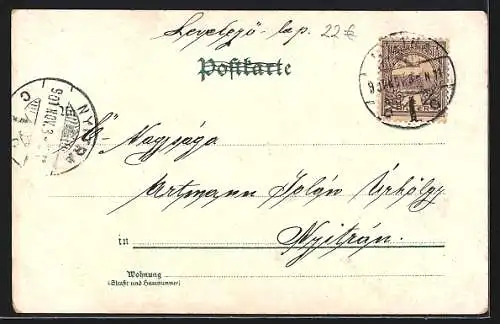 Levelező-lap. 22€
Postkarte
Ő Nagysága
Artmann Jolán Úrhölgy
in Nyitrán.
Wohnung
(Straße und Hausnummer)
NYITRA
901 NOV. 3
1